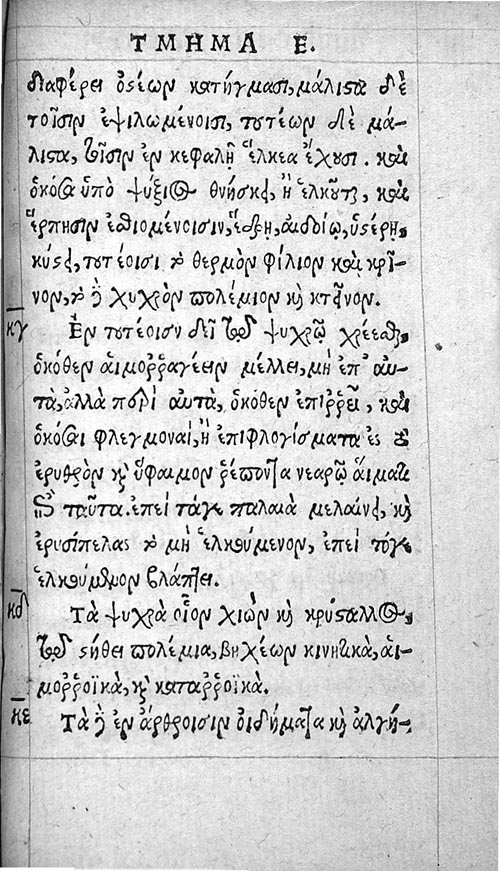 ΤΜΗΜΑ Ε.
διαφέρει ὀστέων κατήγμασι, μάλιστα δὲ
τοῖσιν ἐψιλωμένοισι, τουτέων δὲ μά-
λιστα, τοῖσιν ἐν κεφαλῇ ἕλκεα ἔχουσι. καὶ
ὁκόσα ὑπὸ ψύξιος θνήσκει, ἢ ἑλκοῦται, καὶ
ἕρπησιν ἐσθιομένοισιν, ἕδρῃ, αἰδοίῳ, ὑστέρῃ,
κύστει, τουτέοισι τὸ θερμὸν φίλιον καὶ κρῖ-
νον, τὸ δὲ ψυχρὸν πολέμιον καὶ κτεῖνον.
κγ Ἐν τουτέοισιν δεῖ τῷ ψυχρῷ χρέεσθαι,
ὁκόθεν αἱμοῤῥαγέειν μέλλει, μὴ ἐπ' αὐ-
τὰ, ἀλλὰ περὶ αὐτὰ, ὁκόθεν ἐπιῤῥεῖ, καὶ
ὁκόσαι φλεγμοναὶ, ἢ ἐπιφλογίσματα ἐς τὸ
ἐρυθρὸν καὶ ὕφαιμον ῥέποντα νεαρῷ αἵματι
ἐπὶ ταῦτα. ἐπεὶ τάγε παλαιὰ μελαίνει, καὶ
ἐρυσίπελας τὸ μὴ ἑλκούμενον, ἐπεὶ τόγε
ἑλκούμενον βλάπτει.
κδ Τὰ ψυχρὰ οἷον χιὼν καὶ κρύσταλλος,
τῷ στήθει πολέμια, βηχέων κινητικὰ, αἱ-
μοῤῥοϊκὰ, καὶ καταῤῥοϊκὰ.
κε Τὰ δὲ ἐν ἄρθροισιν οἰδήματα καὶ ἀλγή-